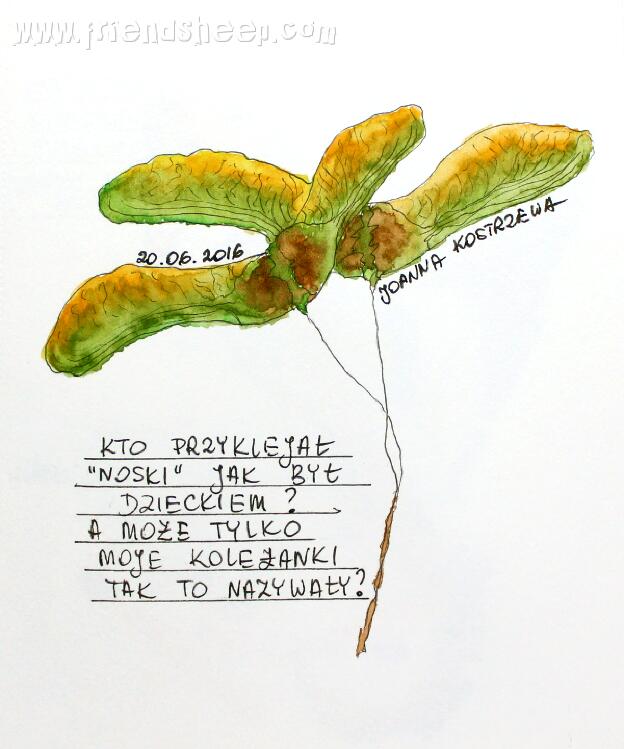 www.friendsheep.com
20.06.2016
JOANNA KOSTRZEWA
KTO PRZYKLEJAŁ
"NOSKI" JAK BYŁ
DZIECKIEM?
A MOŻE TYLKO
MOJE KOLEŻANKI
TAK TO NAZYWAŁY?